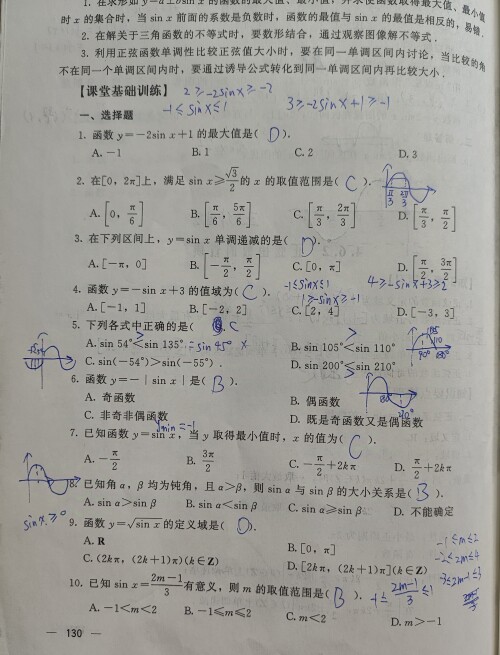 1. 在求形如 y=a±bsin x 的函数的最大值、最小值,并求使函数取得最大值、最小值
时 x 的集合时,当 sin x 前面的系数是负数时,函数的最值与 sin x 的最值是相反的,易错.
2. 在解关于三角函数的不等式时,要数形结合,通过观察图像解不等式.
3. 利用正弦函数单调性比较正弦值大小时,要在同一单调区间内讨论,当比较的角
不在同一个单调区间内时,要通过诱导公式转化到同一单调区间内再比较大小.
【课堂基础训练】 2≥-2sinx≥-2
-1≤sinx≤1 3≥-2sinx+1≥-1
一、选择题
1. 函数 y=-2sin x+1 的最大值是( D ).
A. -1 B. 1 C. 2 D. 3
2. 在[0, 2π]上, 满足 sin x≥√3/2 的 x 的取值范围是( C ). π/3 2π/3
A. [0, π/6] B. [π/6, 5π/6] C. [π/3, 2π/3] D. [π/3, π/2]
3. 在下列区间上, y=sin x 单调递减的是( D ).
A. [-π, 0] B. [-π/2, π/2] C. [0, π] D. [π/2, 3π/2]
-1≤sinx≤1 4≥-sinx+3≥2
4. 函数 y=-sin x+3 的值域为( C ). 1≥-sinx≥-1
A. [-1, 1] B. [-2, 2] C. [2, 4] D. [-3, 3]
5. 下列各式中正确的是( C ).
A. sin 54°≤sin 135° =sin 45° × B. sin 105°<sin 110° >
C. sin(-54°)>sin(-55°). D. sin 200°≤sin 210° >
90° 180°
6. 函数 y=-|sin x|是( B ).
A. 奇函数 B. 偶函数
C. 非奇非偶函数 D. 既是奇函数又是偶函数
7. 已知函数 y=sin x, 当 y 取得最小值时, x 的值为( C ).
A. -π/2 B. 3π/2 C. -π/2+2kπ D. π/2+2kπ
8. 已知角 α, β 均为钝角, 且 α>β, 则 sin α 与 sin β 的大小关系是( B ).
A. sin α>sin β B. sin α<sin β C. sin α≥sin β D. 不能确定
sinx≥0
9. 函数 y=√sin x 的定义域是( D ).
A. R B. [0, π]
C. (2kπ, (2k+1)π)(k∈Z) D. [2kπ, (2k+1)π](k∈Z)
-1≤m≤2
-2≤2m≤4
-3≤2m-1≤3
10. 已知 sin x=(2m-1)/3 有意义, 则 m 的取值范围是( B ). -1≤(2m-1)/3≤1
A. -1<m<2 B. -1≤m≤2 C. m<2 D. m>-1
— 130 —